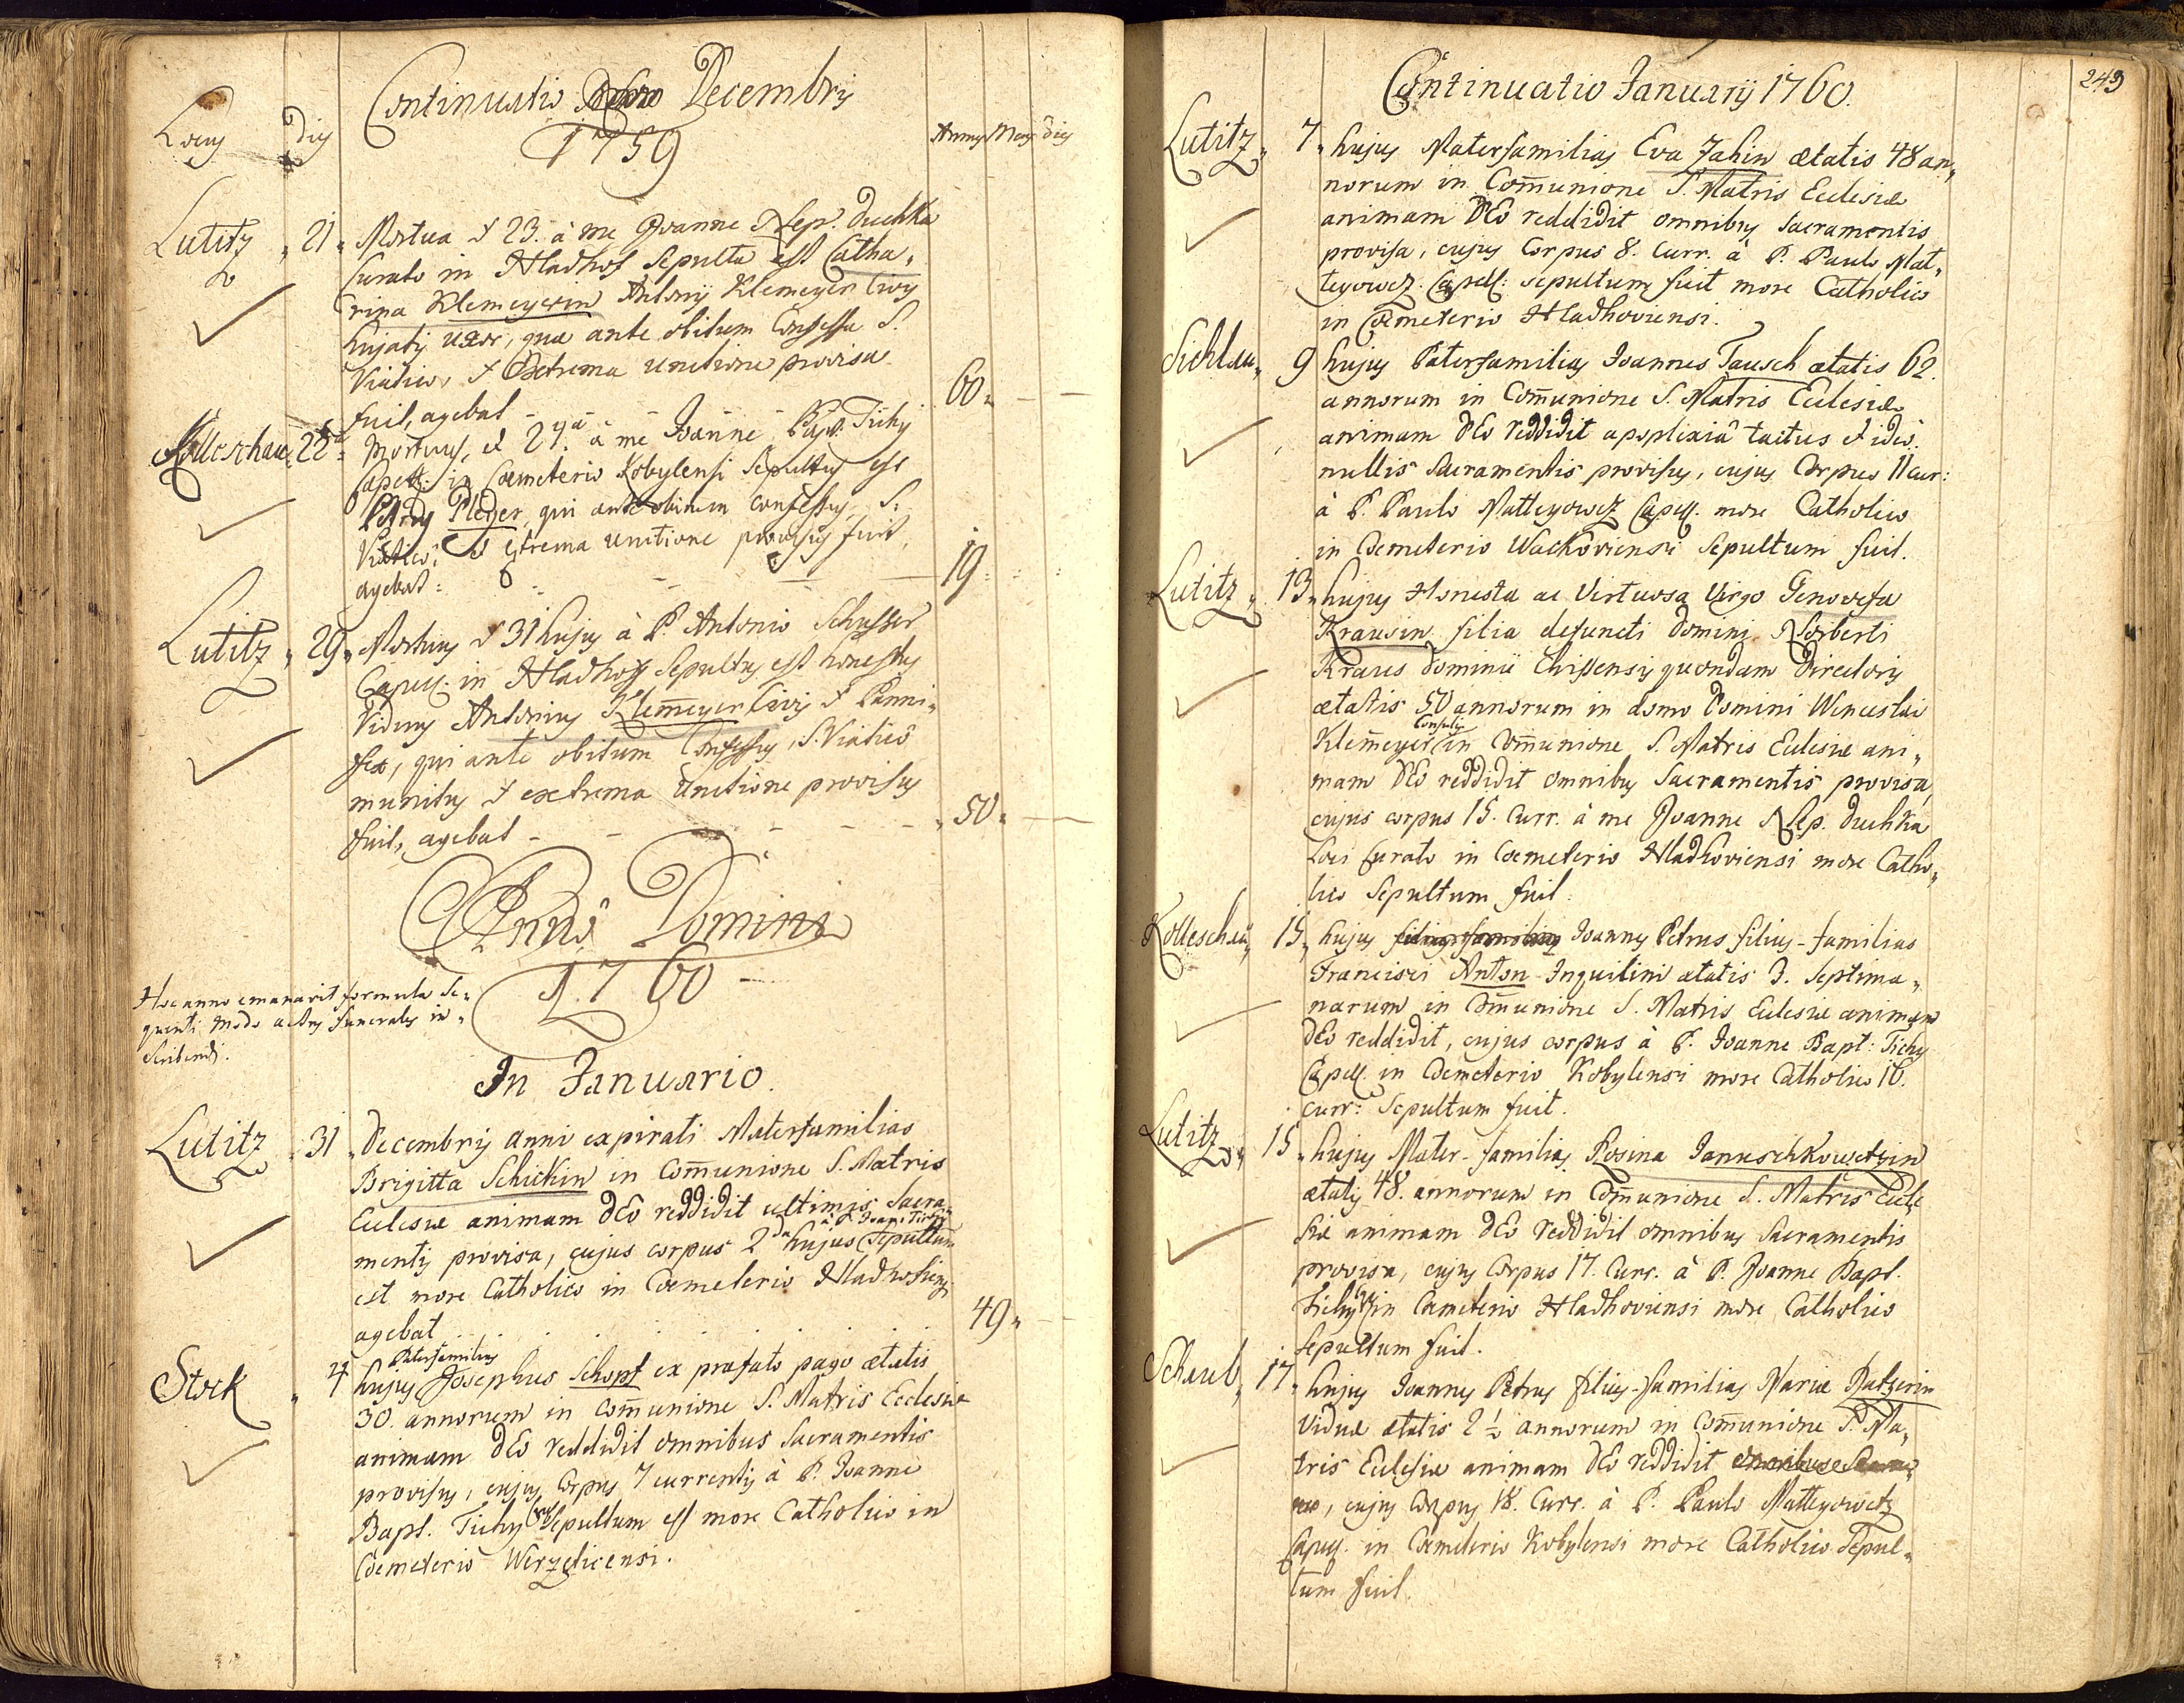 Continuatio Decembris
1759
Locus Dies
Annus Mens dies
Lutitz 21. Mortua & 23. à me Joanne Nep. Duchka
Curato in Hladhof Sepulta est Catha,
rina Klemeyerin Antonij Klemeyer Civis
hujatis uxor, quæ ante obitum Confessa S.
Viatico, & Extrema unctione provisa
fuit, agebat - - - - 60.
Kolleschau 22 Mortuus, et 24ta à me Joanne Bapt. Tichy
Capell: in Coemeterio Kobylensi Sepultus est
Petrus Pleger, qui ante obitum confessus, S.
Viatico, et extrema unctione provisus fuit,
agebat: - - - 19.
Lutitz 29. Mortuus & 31 hujus à P. Antonio Schusser
Capell. in Hladhoff Sepultus est honestus
Viduus Antonius Klem̄eyer Civis & Panni,
fex, qui ante obitum Confessus, S. Viaticô
munitus & extrema Unctione provisus
fuit, agebat - - - - 50.
Anno Domini
1760
Hoc anno emanavit formula se,
quenti modo actus funerales in,
scribendi.
In Januario.
Lutitz 31 Decembris anni expirati Materfamilias
Brigitta Schickin in Com̄unione S. Matris
Ecclesiæ animam DEo reddidit ultimis Sacra,
mentis provisa, cujus corpus 2da hujus à P. Joan: Tichy Sepultum
est more Catholico in Coemeterio Hladhofiensi
agebat . . . . . 49.
Stock 4 hujus Paterfamilias Josephus Schopf ex præfato pago ætatis
30. annorum in com̄unione S. Matris Ecclesiæ
animam DEo reddidit omnibus Sacramentis
provisus, cujus Corpus 7 currentis à P. Joanne
Bapt. Tichy Sepultum est more Catholico in
Coemeterio Werzedicensi.
249
Continuatio Januarij 1760.
Lutitz 7. hujus Materfamilias Eva Jahin ætatis 48 an,
norum in Com̄unione S. Matris Ecclesiæ
animam DEo reddidit omnibus Sacramentis
provisa, cujus Corpus 8. Curr. à P. Paulo Mat,
teyowcz. Capell: sepultum fuit more Catholico
in Coemeterio Hladhoviensi.
Sichlau 9 hujus Paterfamilias Joannes Tausch ætatis 62.
annorum in Com̄unione S. Matris Ecclesiæ
animam DEo reddidit apoplexiâ tactus et ideo
nullis Sacramentis provisus, cujus Corpus 11 cur:
à P. Paulo Matteyowcz Capell. more Catholico
in Coemeterio Wackoviensi Sepultum fuit.
Lutitz 13. hujus Honesta ac Virtuosa Virgo Genovefa
Krausin filia defuncti Domini Norberti
Kraus Dominii Chissensis quondam Directoris
ætatis 50 annorum in domo Domini Wenceslai
Klem̄eyer Consulis in Com̄unione S. Matris Ecclesiæ ani,
mam DEo reddidit omnibus Sacramentis provisa,
cujus corpus 15. Curr. à me Joanne Nep. Duchka
Loci Curato in Coemeterio Hladhoviensi more Catho,
lico Sepultum fuit.
Kolleschau 15, hujus Joannes Petrus filius-familias
Francisci Anton Inquilini ætatis 3. Septima,
narum in Com̄unione S. Matris Ecclesiæ animam
DEo reddidit, cujus corpus à P. Joanne Bapt: Tichy
Capell. in Coemeterio Kobylensi more Catholico 16.
curr: Sepultum fuit.
Lutitz 15. hujus Mater-familias Rosina Januschkowetzin
ætatis 48. annorum in Com̄unione S. Matris Eccle
siæ animam DEo reddidit omnibus Sacramentis
provisa, cujus Corpus 17. Curr. à P. Joanne Bapt.
Tichy in Coemeterio Hladhoviensi more Catholico
Sepultum fuit.
Schaub 17. hujus Joannes Petrus filius-familias Mariæ Ratzerin
Viduæ ætatis 2 1/2 annorum in Com̄unione S. Ma,
tris Ecclesiæ animam DEo reddidit
cujus Corpus 18. Curr. à P. Paulo Matteyowetz
Capell. in Coemeterio Kobylensi more Catholico Sepul,
tum fuit.